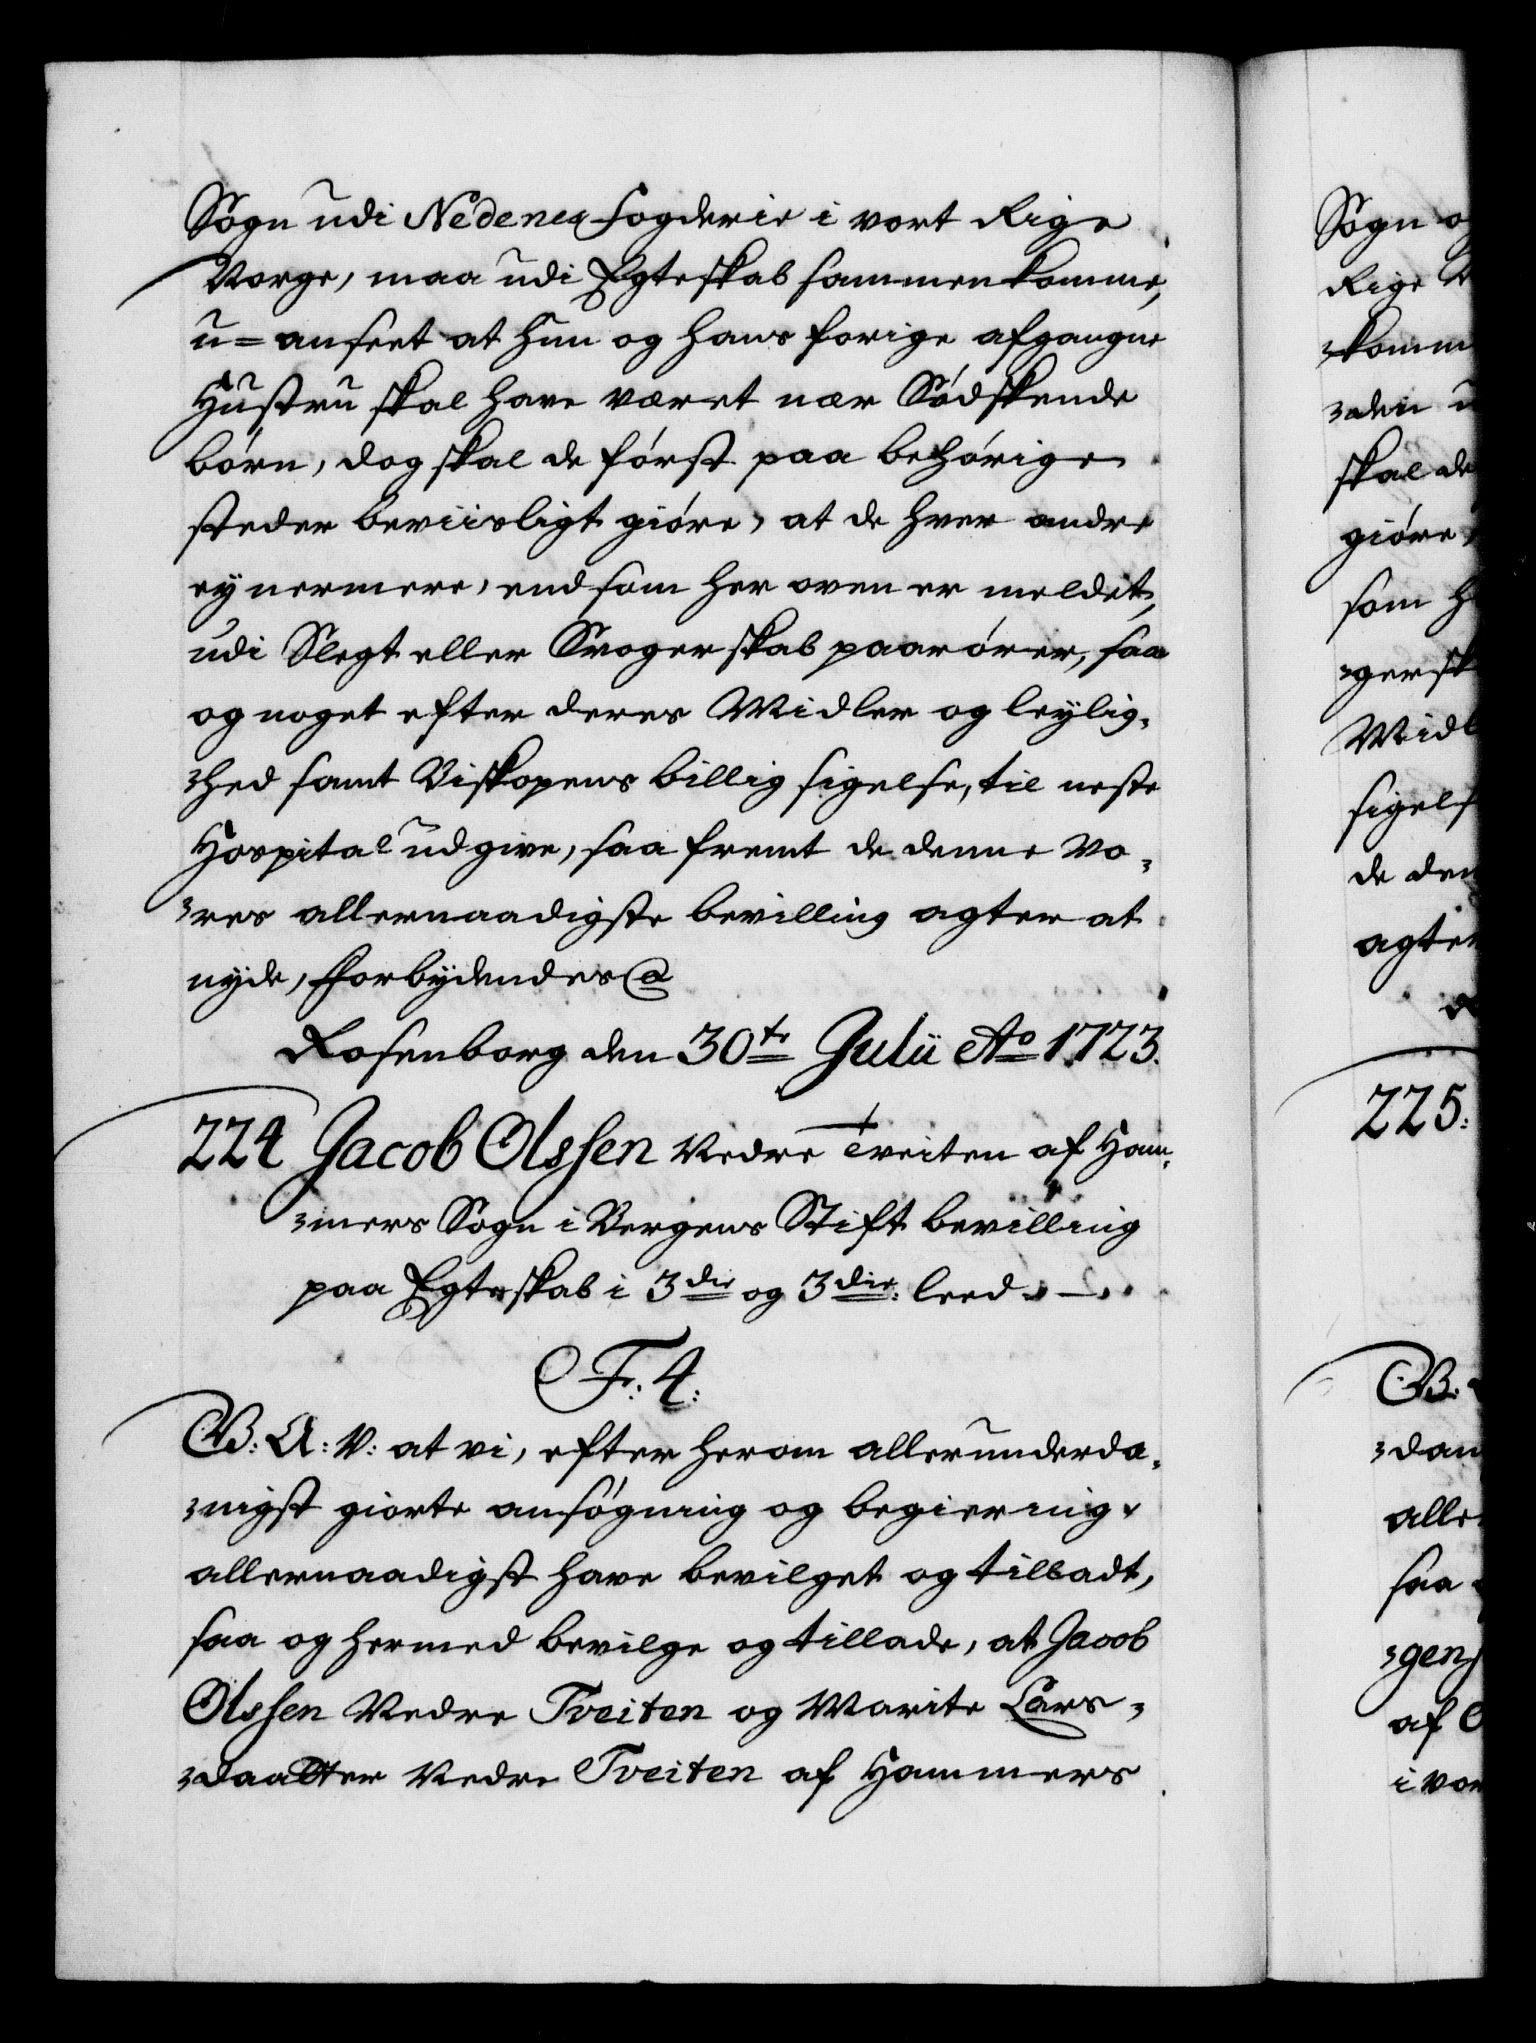 Sogn udi Nedenes Fogderie i vort Rige
Norge, maa udi Egteskab sammenkomme,
u=anseet at hun og hans forige afgangne
Hustru skal have været nær Södskende
börn, dog skal de först paa behörige
steder beviisligt giöre, at de hver andre
ey nermere, end som her oven er meldet,
udi Slegt eller Svogerskab paarörer, saa
og noget efter deres Midler og leylig-
-hed samt Biskopens billig sigelse, til neste
Hospital udgive, saa fremt de denne Vo-
-res allernaadigste bevilling agter at
nyde, Forbydendes
Rosenborg den 30te Julii Ao 1723.
224 Jacob Olssen Nedre Tveiten af Ham-
-mers Sogn i Bergens Stift bevilling
paa Egteskab i 3die og 3die: leed
F: 4:
B: A: V: at vi, efter herom allerunderda-
-nigst giorte ansögning og begiering
allernaadigst have bevilget og tilladt,
saa og hermed bevilge og tillade, at Jacob
Olssen Nedre Tveiten og Marite Lars-
-daatter Nedre Tveiten af Hammers
Sogn o
Rige N
-komm
-den u
skal de
giöre,
som h
-gersk
Midl
sigels
de den
agter
R
225:
B:
-dan
alle
saa
-gens
af O
i vor